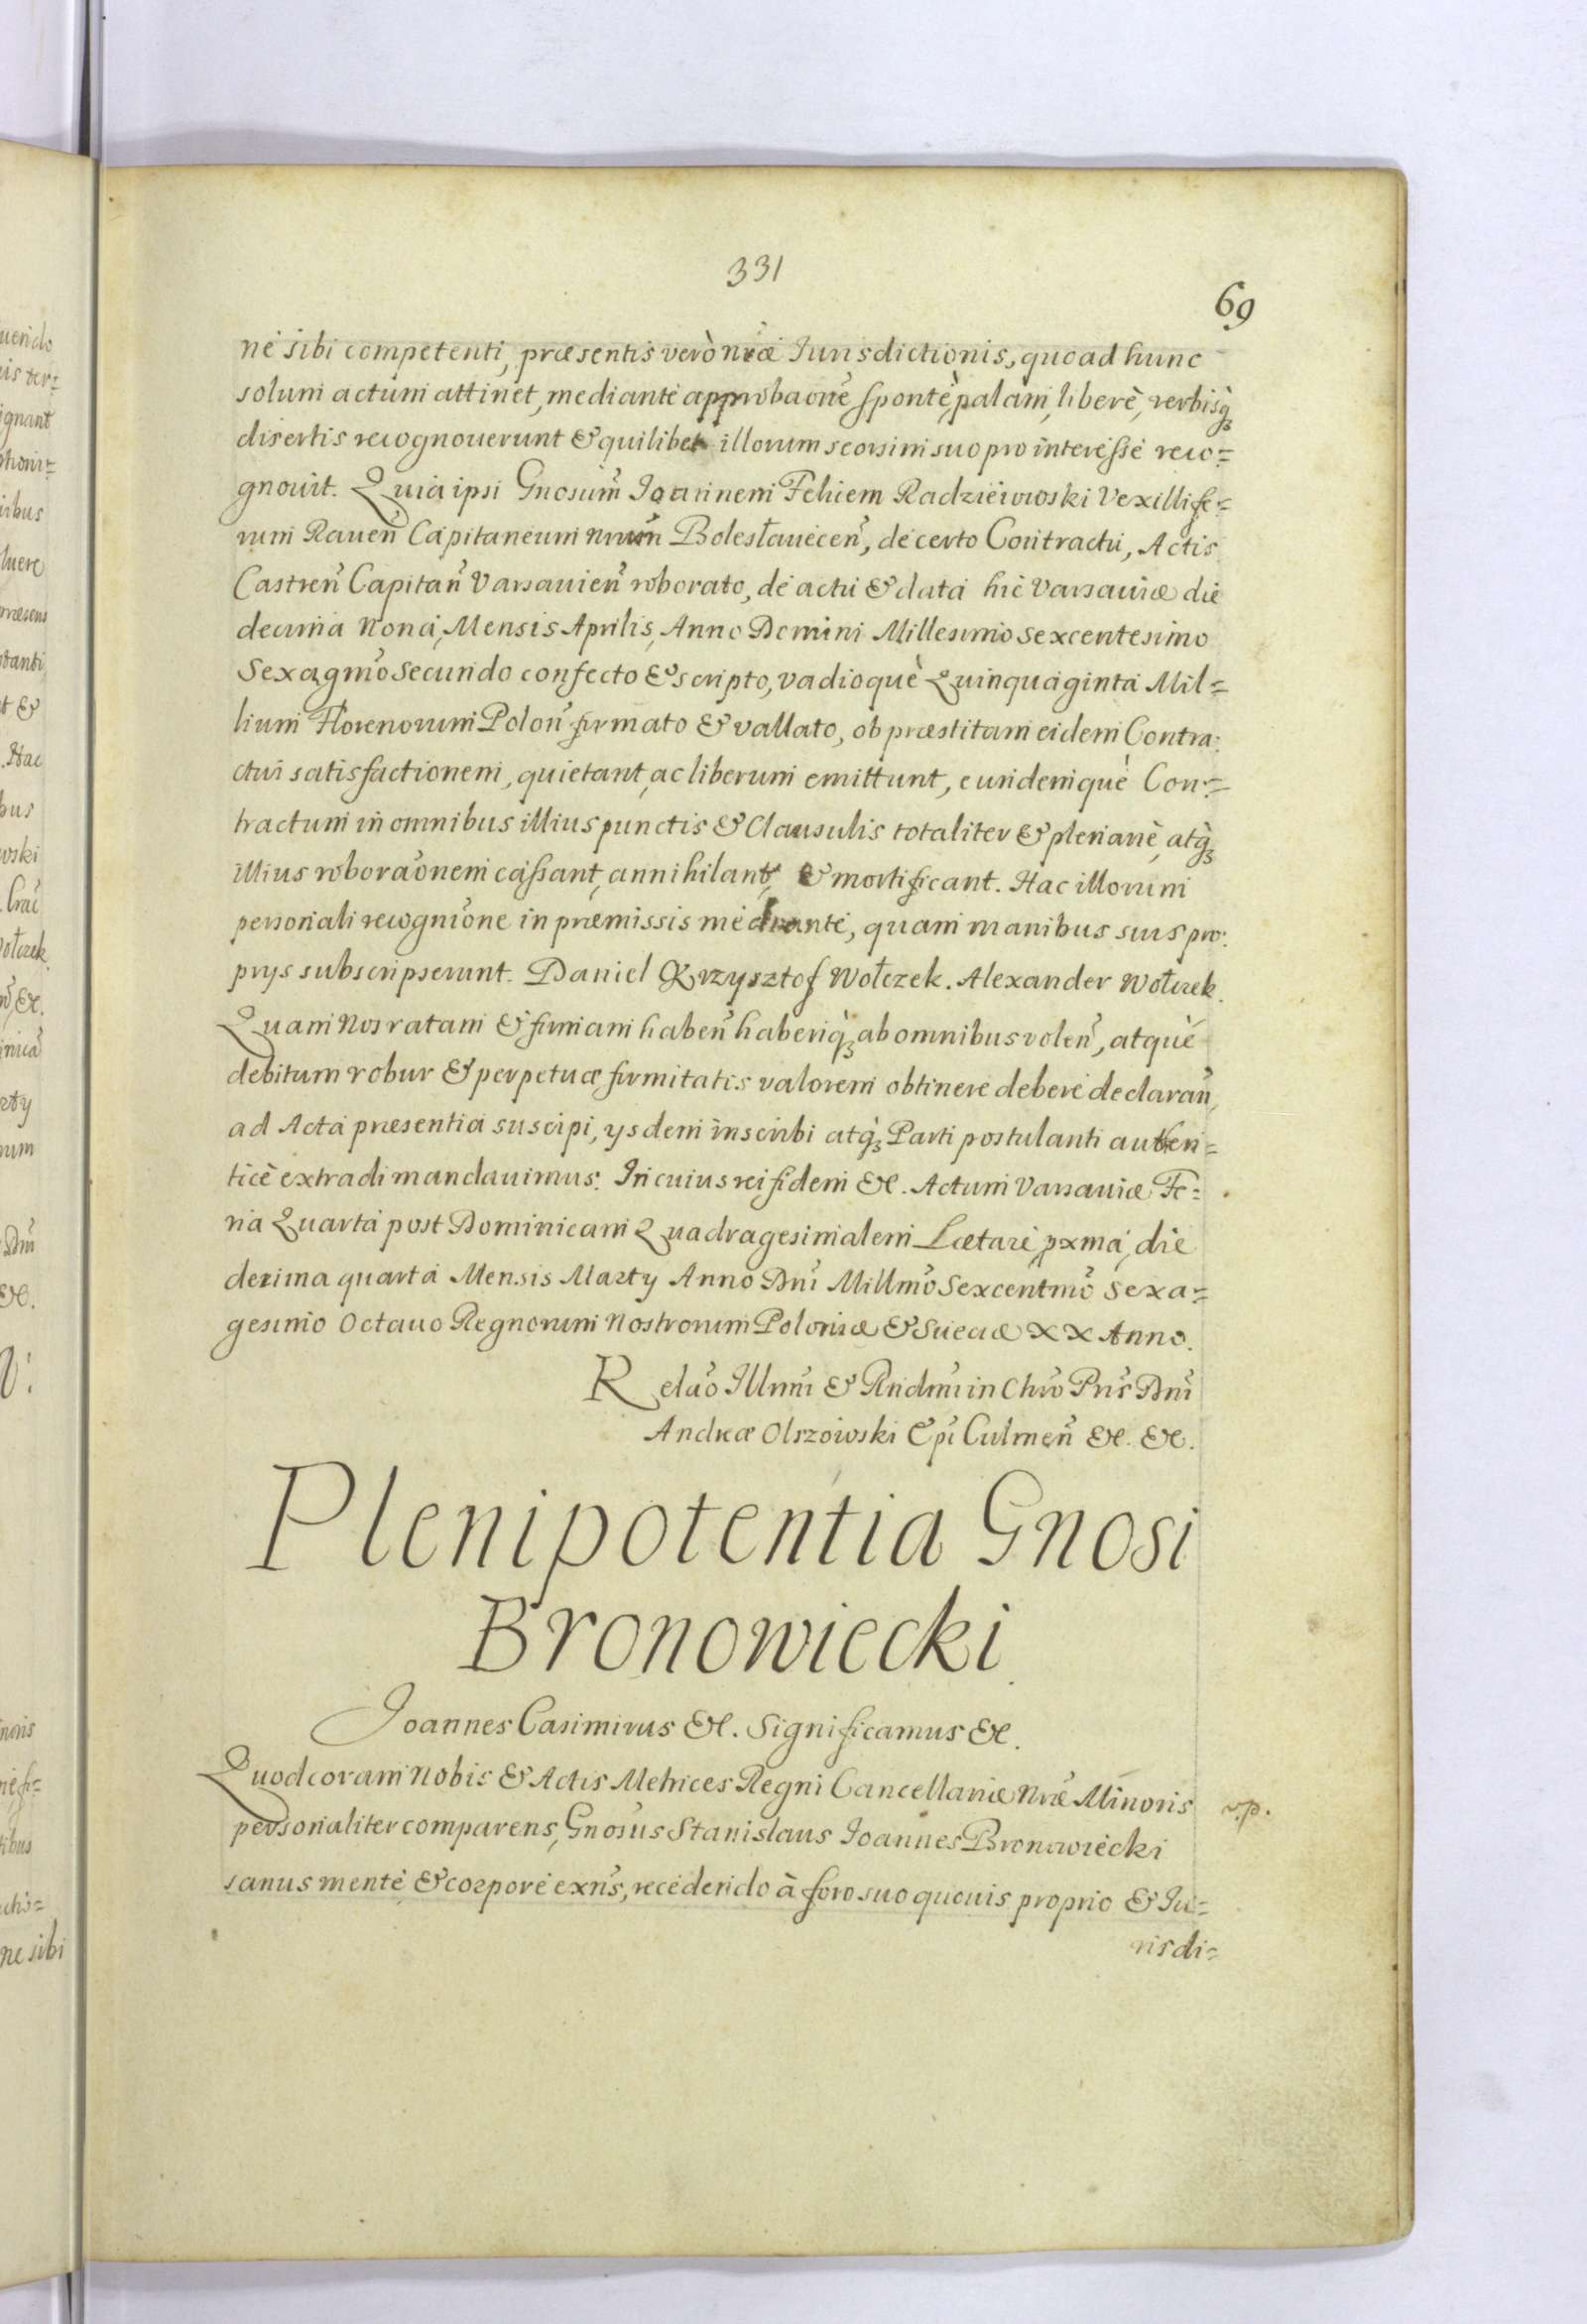 331
69
ne sibi competenti, præsentis verò nræ Iurisdictionis, quoad hunc
solum actum attinet, mediante approbaone sponte, palam, liberè, verbisq
disertis recognouerunt & quilibet illorum seorsim suo pro interesse reco=
gnouit. Quia ipsi Gnosum Ioannem Felicem Radzieiowski Vexillife=
rum Rauen Capitaneum nrum Bolesłauecen, de certo Contractu, Actis
Castren Capitan Varsauien roborato, de actu & data hic Varsauiæ die
decima nona, Mensis Aprilis, Anno Domini Millesimo sexcentesimo
Sexagmo secundo confecto & scripto, vadioquè Quinquaginta Mil=
lium Florenorum Polon firmato & vallato, ob præstitam eidem Contra:
ctui satisfactionem, quietant, ac liberum emittunt, eundemquè Con=
tractum in omnibus illius punctis & Clausulis totaliter & plenariè, atq
illius roboraonem cassant, annihilant, & mortificant. Hac illorum
personali recognione in præmissis mediante, quam manibus suis pro:
prys subscripserunt. Daniel Krzysztof Wołczek. Alexander Wołczek.
Quam Nos ratam & firmam haben haberiq ab omnibus volen, atquè
debitum robur & perpetuæ firmitatis valorem obtinere debere declaran,
ad Acta præsentia suscipi, ysdem inscribi atq Parti postulanti authen=
ticè extradi mandauimus. In cuius rei fidem &c. Actum Varsauiæ Fe=
ria Quarta post Dominicam Quadragesimalem Lætare pxma, die
decima quarta Mensis Marty Anno Dni Millmo Sexcentmo sexa=
gesimo Octauo Regnorum Nostrorum Poloniæ & Sueciæ XX Anno.
Relao Illmi & Rndmi in Chro Pris Dni
Andreæ Olszowski Epi Culmen &c. &c.
Plenipotentia Gnosi
Bronowiecki
Joannes Casimirus &c. Significamus &c.
Quod coram Nobis & Actis Metrices Regni Cancellariæ Nræ Minoris
personaliter comparens, Gnosus Stanislaus Joannes Bronowiecki
sanus mente & corpore exns, recedendo à foro suo quouis proprio & Iu=
risdi=